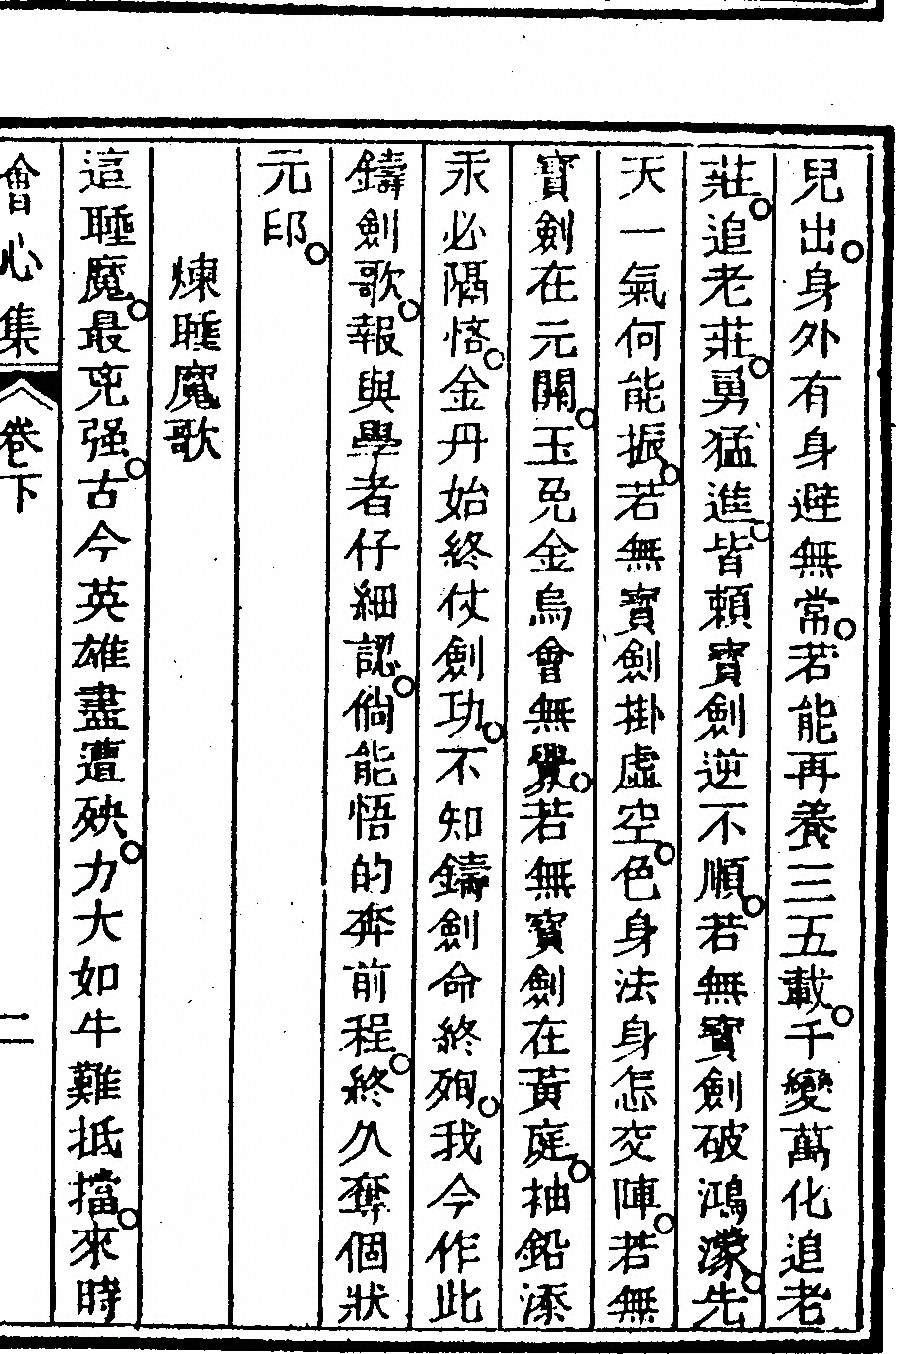 兒出。身外有身避無常。若能再養三五載。千變萬化追老
莊。追老莊。勇猛進。皆賴寶劍逆不順。若無寶劍破鴻濛。先
天一氣何能振。若無寶劍掛虛空。色身法身怎交陣。若無
寶劍在元關。玉兔金烏會無覺。若無寶劍在黃庭。抽鉛添
汞必隔悋。金丹始終仗劍功。不知鑄劍命終殉。我今作此
鑄劍歌。報與學者仔細認。倘能悟的奔前程。終久奪個狀
元印。
煉睡魔歌
這睡魔。最兇强。古今英雄盡遭殃。力大如牛難抵擋。來時
會心集 卷下 二